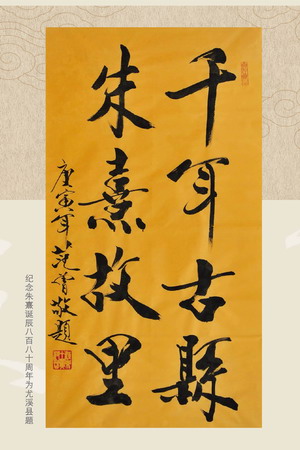 千年古縣
朱熹故里
庚寅年范曾敬題
纪念朱熹诞辰八百八十周年为尤溪县题